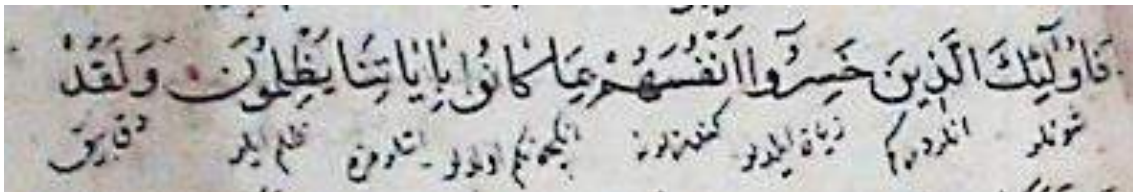 فَاُولٰٓئِكَ الَّذِينَ خَسِرُٓوا اَنْفُسَهُمْ بِمَا كَانُوا بِاٰيَاتِنَا يَظْلِمُونَ وَلَقَدْ
شونلر انلردركم زيان ايلديلر كندولرينه انكچونكم اولديلر ظلم ايلر